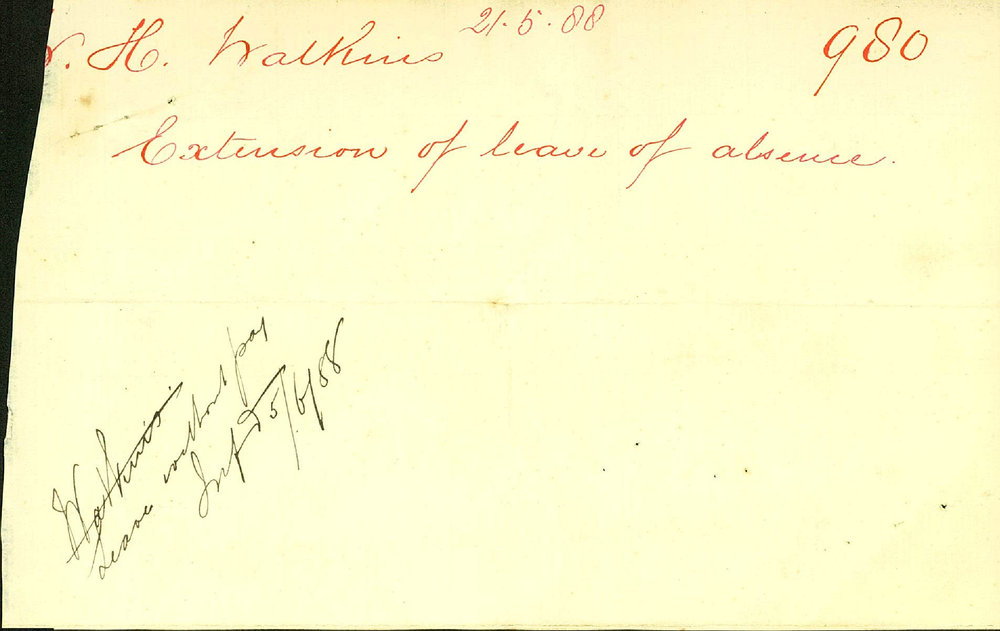 . H. Watkins 21.5.88 980
Extension of leave of absence.
Watkins.
Leave without pay
Infd 5/6/88